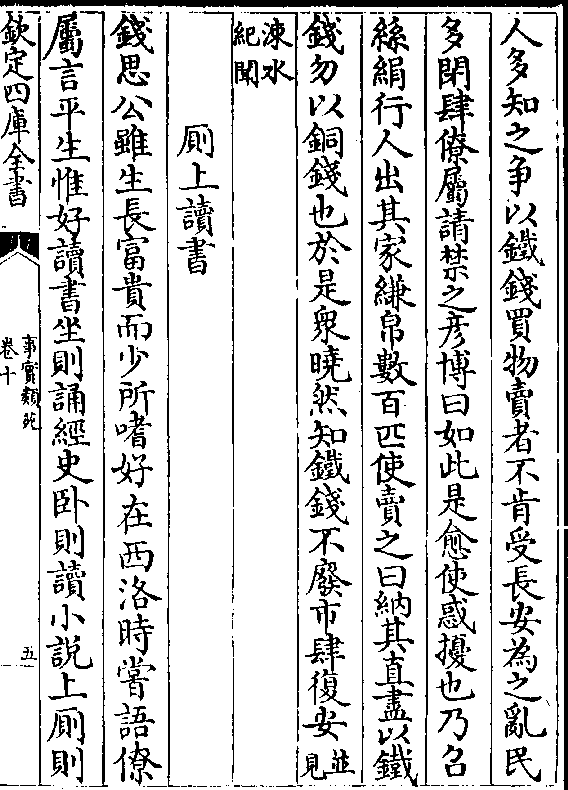 人多知之争以鐵錢買物賣者不肯受長安為之亂民
多閉肆僚屬請禁之彦博曰如此是愈使惑擾也乃召
絲絹行人出其家縑帛數百匹使賣之曰納其直盡以鐵
錢勿以銅錢也於是衆曉然知鐵錢不廢市肆復安並見
涑水紀聞
厠上讀書
錢思公雖生長富貴而少所嗜好在西洛時嘗語僚
屬言平生惟好讀書坐則誦經史卧則讀小說上厠則
欽定四庫全書
事實類苑
卷十
五